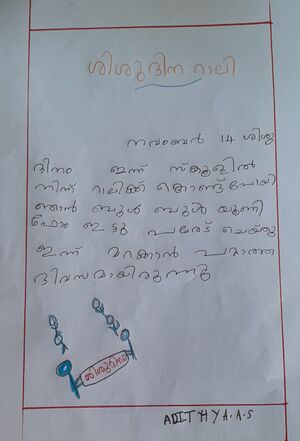 ശിശുദിന റാലി
നവംബർ 14 ശിശു
ദിനം ഇന്ന് സ്കൂളിൽ
നിന്ന് റാലിക്ക് കൊണ്ടുപോയി
ഞാൻ ബുൾ ബുൾ യൂണി
ഫോം ഇട്ടു പരേഡ് ചെയ്തു
ഇന്ന് മറക്കാൻ പറ്റാത്ത
ദിവസമായിരുന്നു
ശിശുദിനം
ADITHYA.A.S